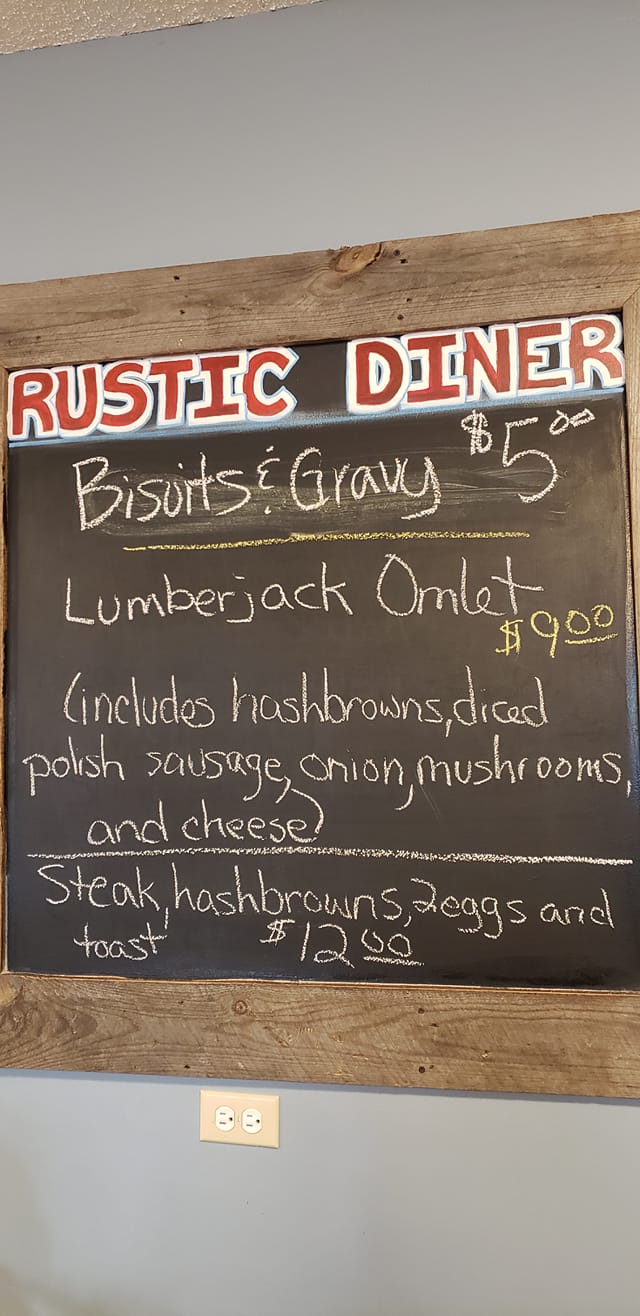 RUSTIC DINER
Bisuits & Gravy $5.00
Lumberjack Omlet
$9.00
(includes hashbrowns, diced
polish sausage, onion, mushrooms,
and cheese)
Steak, hashbrowns, 2 eggs and
toast $12.00